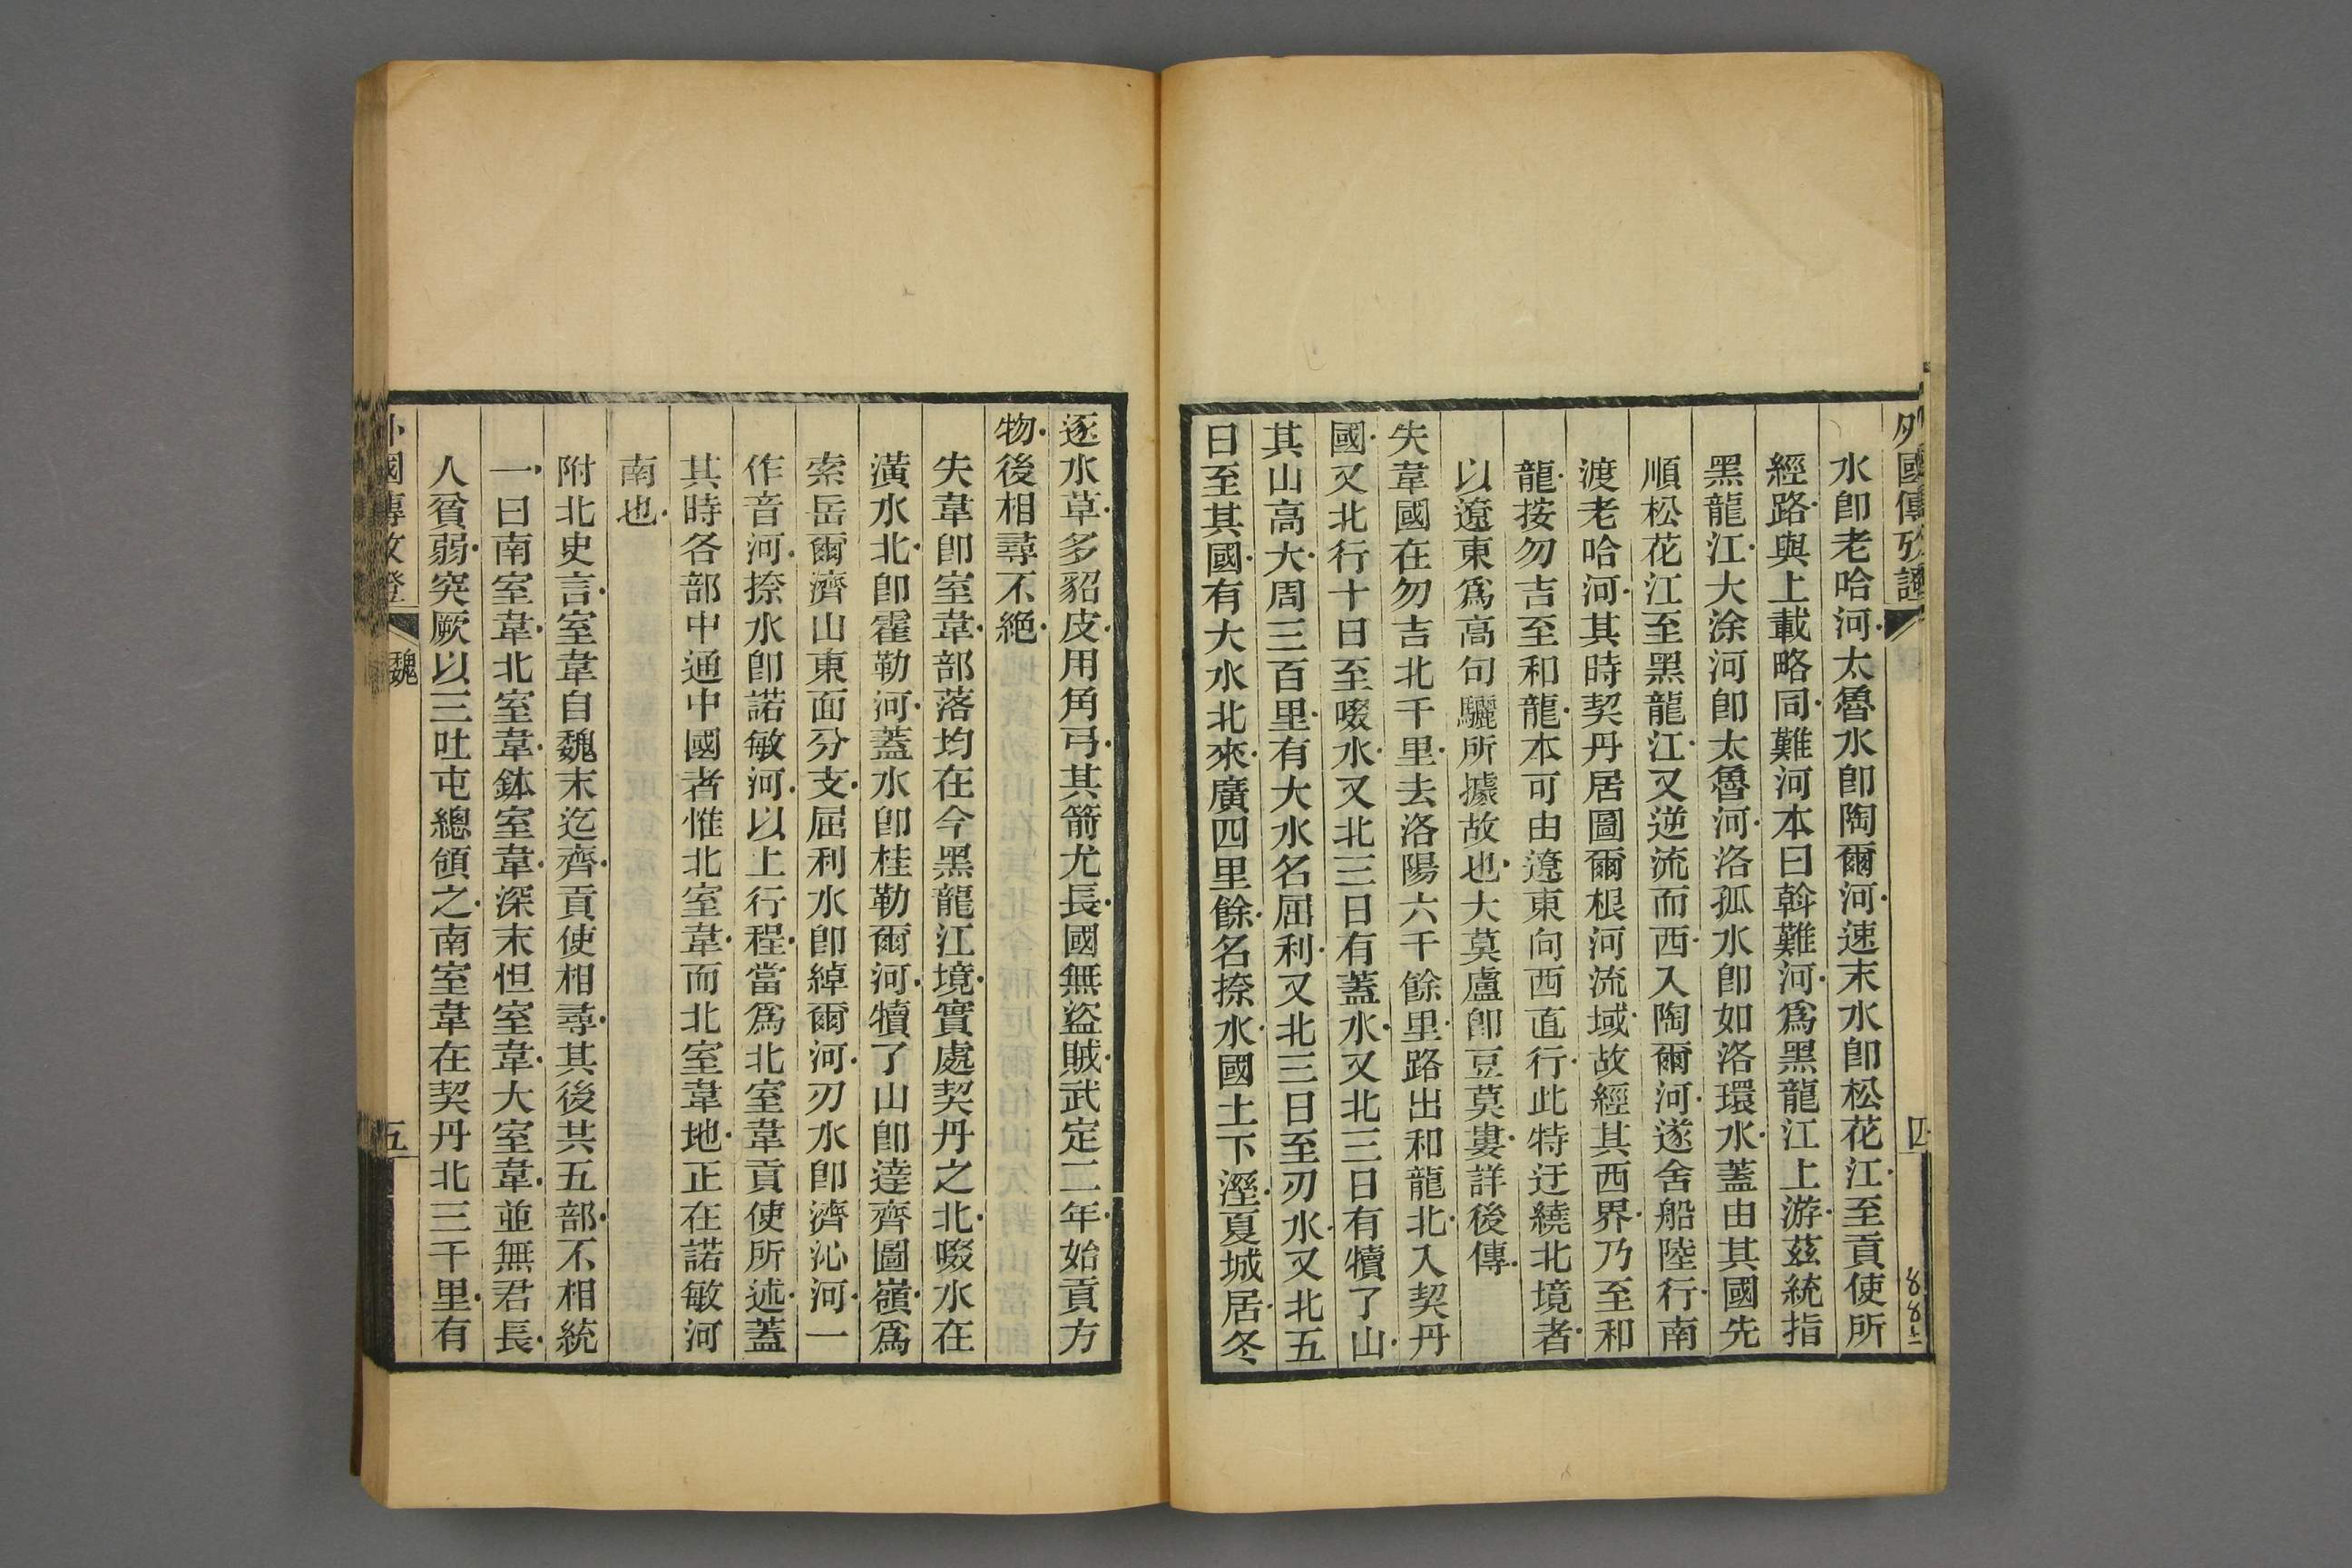 外國傳攷證
四
88上
水卽老哈河太魯水卽陶爾河速末水卽松花江至貢使所
經路與上載略同難河本曰斡難河爲黑龍江上游茲統指
黑龍江大涂河卽太魯河洛孤水卽如洛環水蓋由其國先
順松花江至黑龍江又逆流而西入陶爾河遂舍船陸行南
渡老哈河其時契丹居圖爾根河流域故經其西界乃至和
龍按勿吉至和龍本可由遼東向西直行此特迂繞北境者
以遼東爲高句驪所據故也大莫盧卽豆莫婁詳後傳
失韋國在勿吉北千里去洛陽六千餘里路出和龍北入契丹
國又北行十日至啜水又北三日有蓋水又北三日有犢了山
其山高大周三百里有大水名屈利又北三日至刃水又北五
日至其國有大水北來廣四里餘名㮈水國土下溼夏城居冬
逐水草多貂皮用角弓其箭尤長國無盜賊武定二年始貢方
物後相尋不絶
失韋卽室韋部落均在今黑龍江境實處契丹之北啜水在
潢水北卽霍勒河蓋水卽桂勒爾河犢了山卽達齊圖嶺爲
索岳爾濟山東面分支屈利水卽綽爾河刃水卽濟沁河一
作音河㮈水卽諾敏河以上行程當爲北室韋貢使所述蓋
其時各部中通中國者惟北室韋而北室韋地正在諾敏河
南也
附北史言室韋自魏末迄齊貢使相尋其後共五部不相統
一曰南室韋北室韋鉢室韋深末怛室韋大室韋並無君長
人貧弱突厥以三吐屯總領之南室韋在契丹北三千里有
外國傳攷證
魏
五